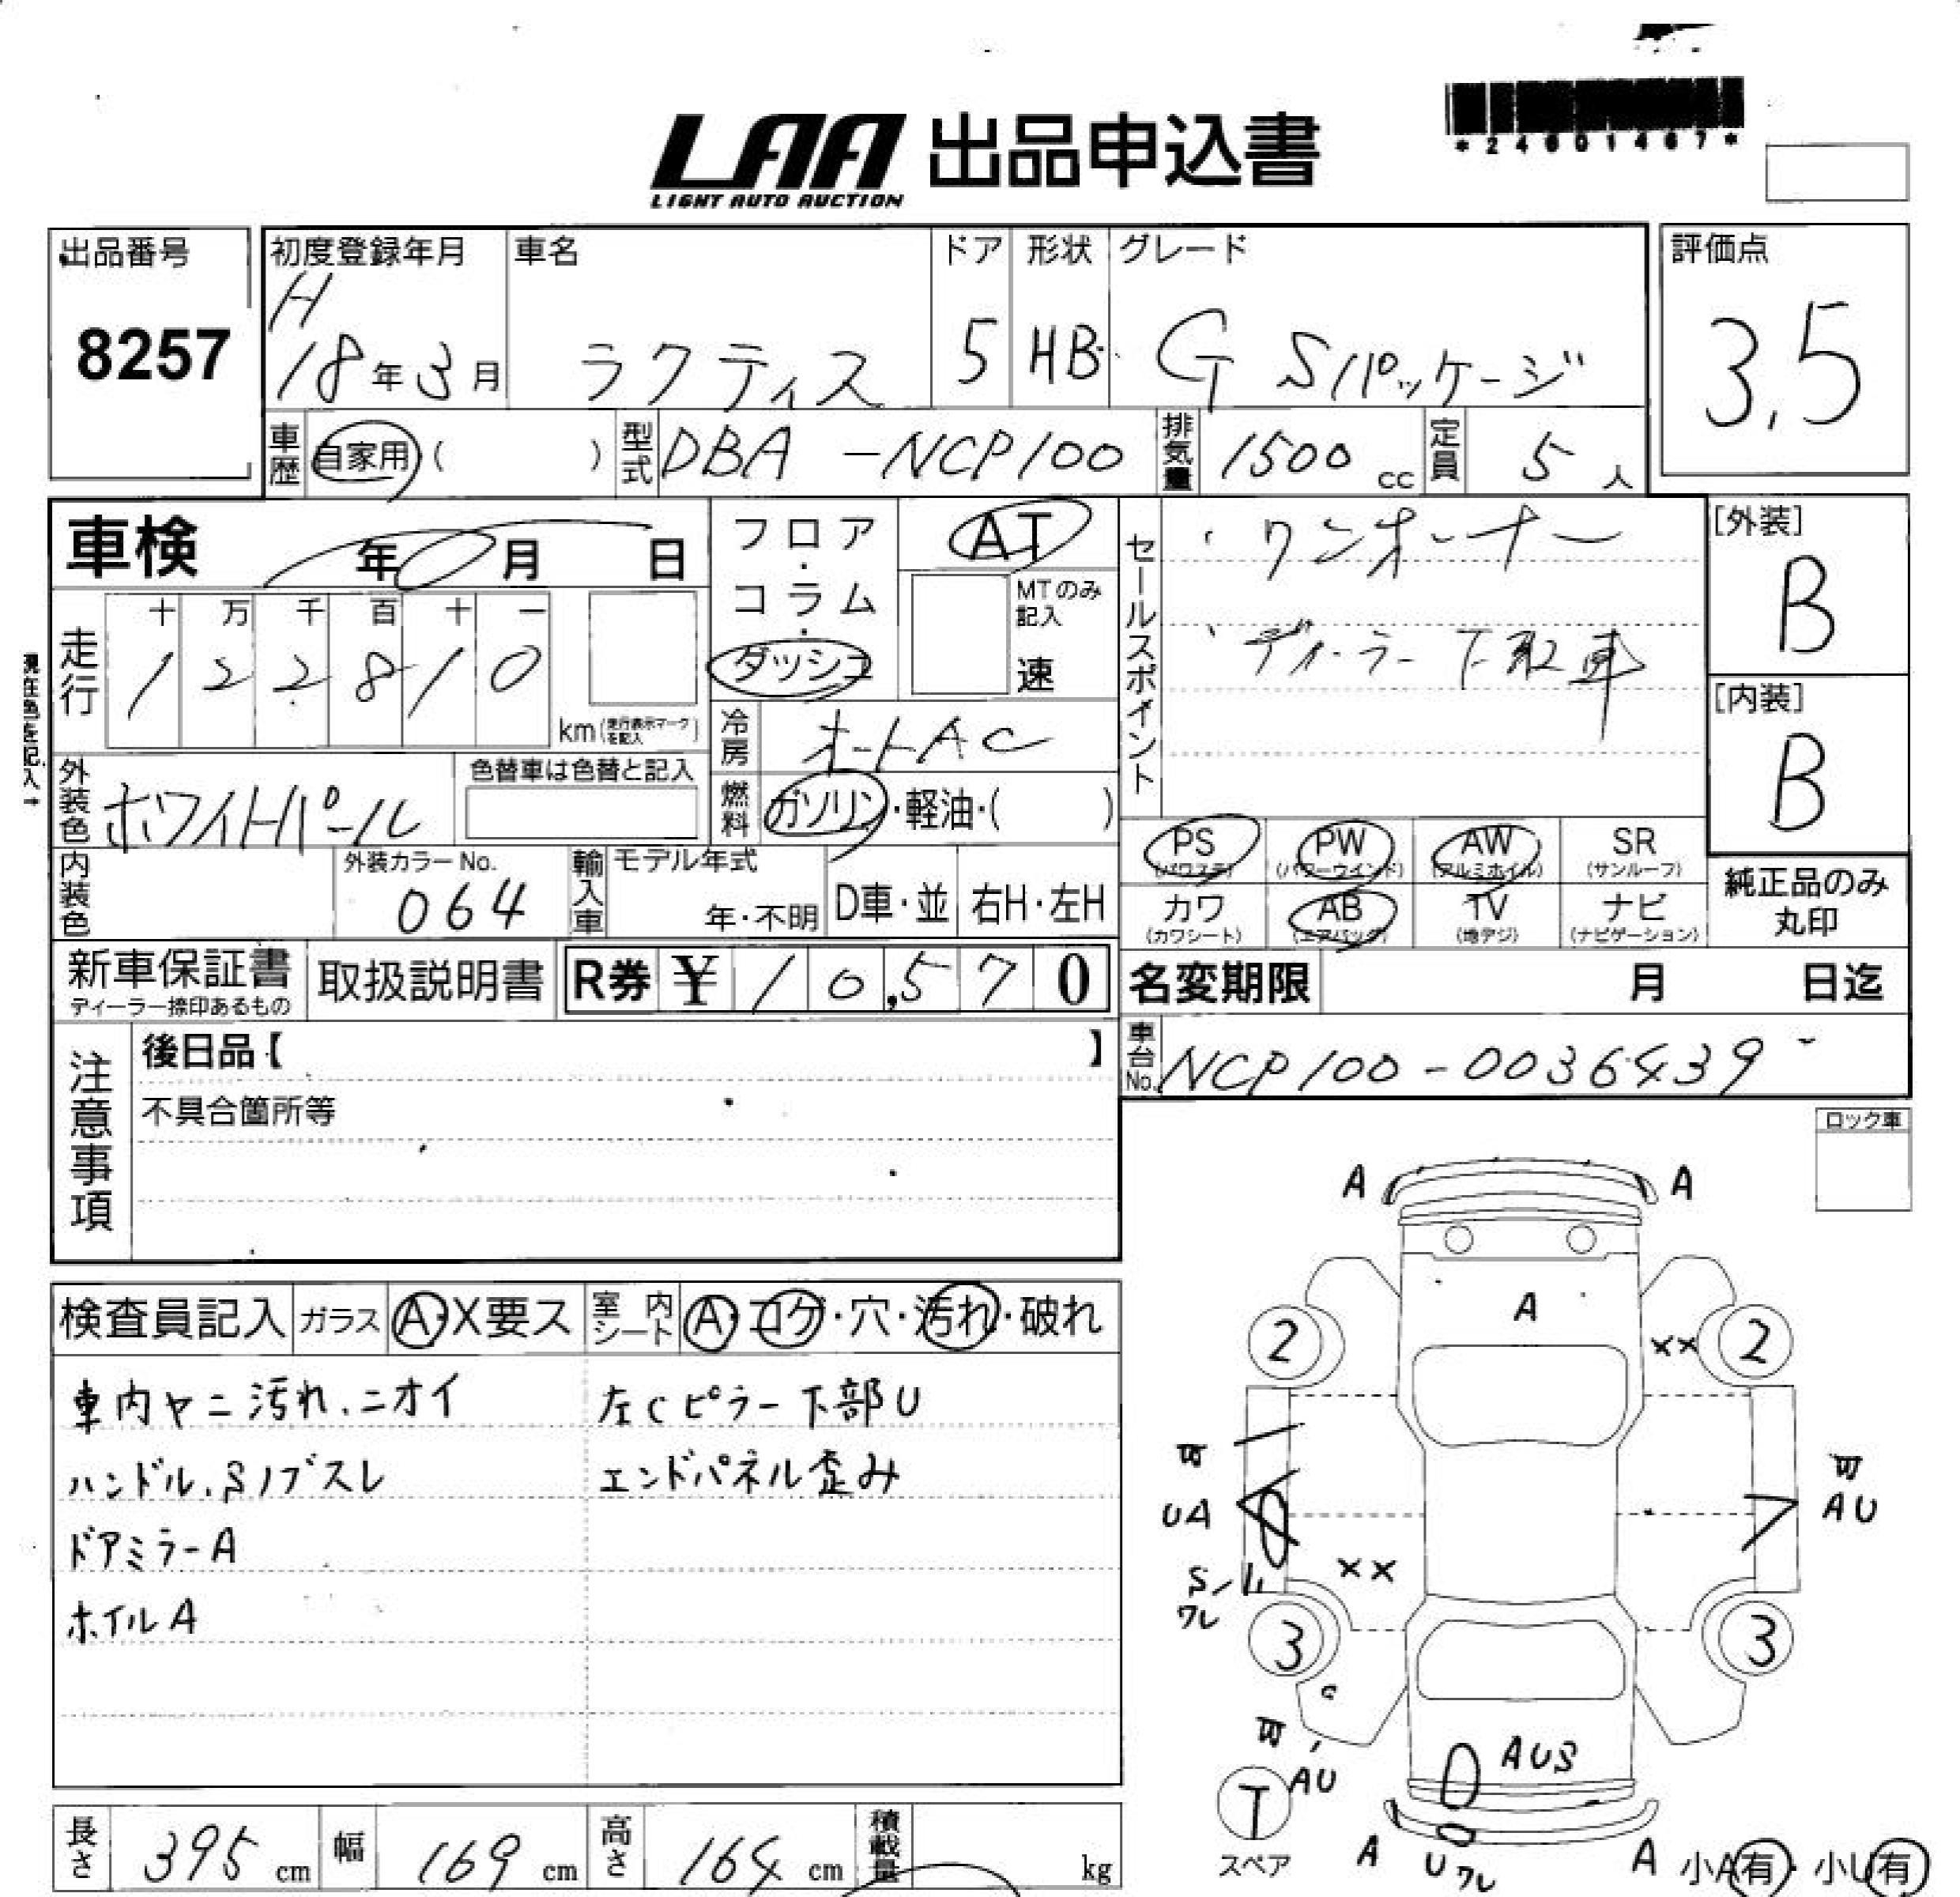 LAA 出品申込書
LIGHT AUTO AUCTION
*24601467*
出品番号
8257
初度登録年月
H
18年3月
車名
ラクティス
ドア
5
形状
HB
グレード
G Sパッケージ
評価点
3.5
車歴 自家用 ( )
型式 DBA-NCP100
排気量 1500 cc
定員 5 人
車検 年 月 日
フロア・コラム・ダッシュ
AT
MTのみ記入
速
セールスポイント
・ワンオーナー
・ディーラー下取車
[外装]
B
[内装]
B
現在色を記入→
走行
十 万 千 百 十 一
1 2 2 8 1 0
km (走行表示マークを記入)
冷房 オートAC
燃料 ガソリン・軽油・( )
外装色 ホワイトパール
色替車は色替と記入
内装色
外装カラーNo.
064
輸入車
モデル年式
年・不明
D車・並
右H・左H
PS (パワステ)
PW (パワーウインド)
AW (アルミホイル)
SR (サンルーフ)
カワ (カワシート)
AB (エアバッグ)
TV (地デジ)
ナビ (ナビゲーション)
純正品のみ
丸印
新車保証書
ディーラー捺印あるもの
取扱説明書
R券 ¥ 10,570
名変期限 月 日迄
車台No. NCP100-0036439
注意事項
後日品【 】
不具合箇所等
ロック車
検査員記入
ガラス A・X要ス
室内シート A・コゲ・穴・汚れ・破れ
車内ヤニ汚れ、ニオイ
左Cピラー下部U
ハンドル、Sノブスレ
エンドパネル歪み
ドアミラーA
ホイルA
A A
A
2 XX 2
UA AU
S XX
ワレ
3 3
C
AU
AUS
T
スペア
A Uワレ A
小A有・小U有
長さ 395 cm
幅 169 cm
高さ 164 cm
積載量 kg